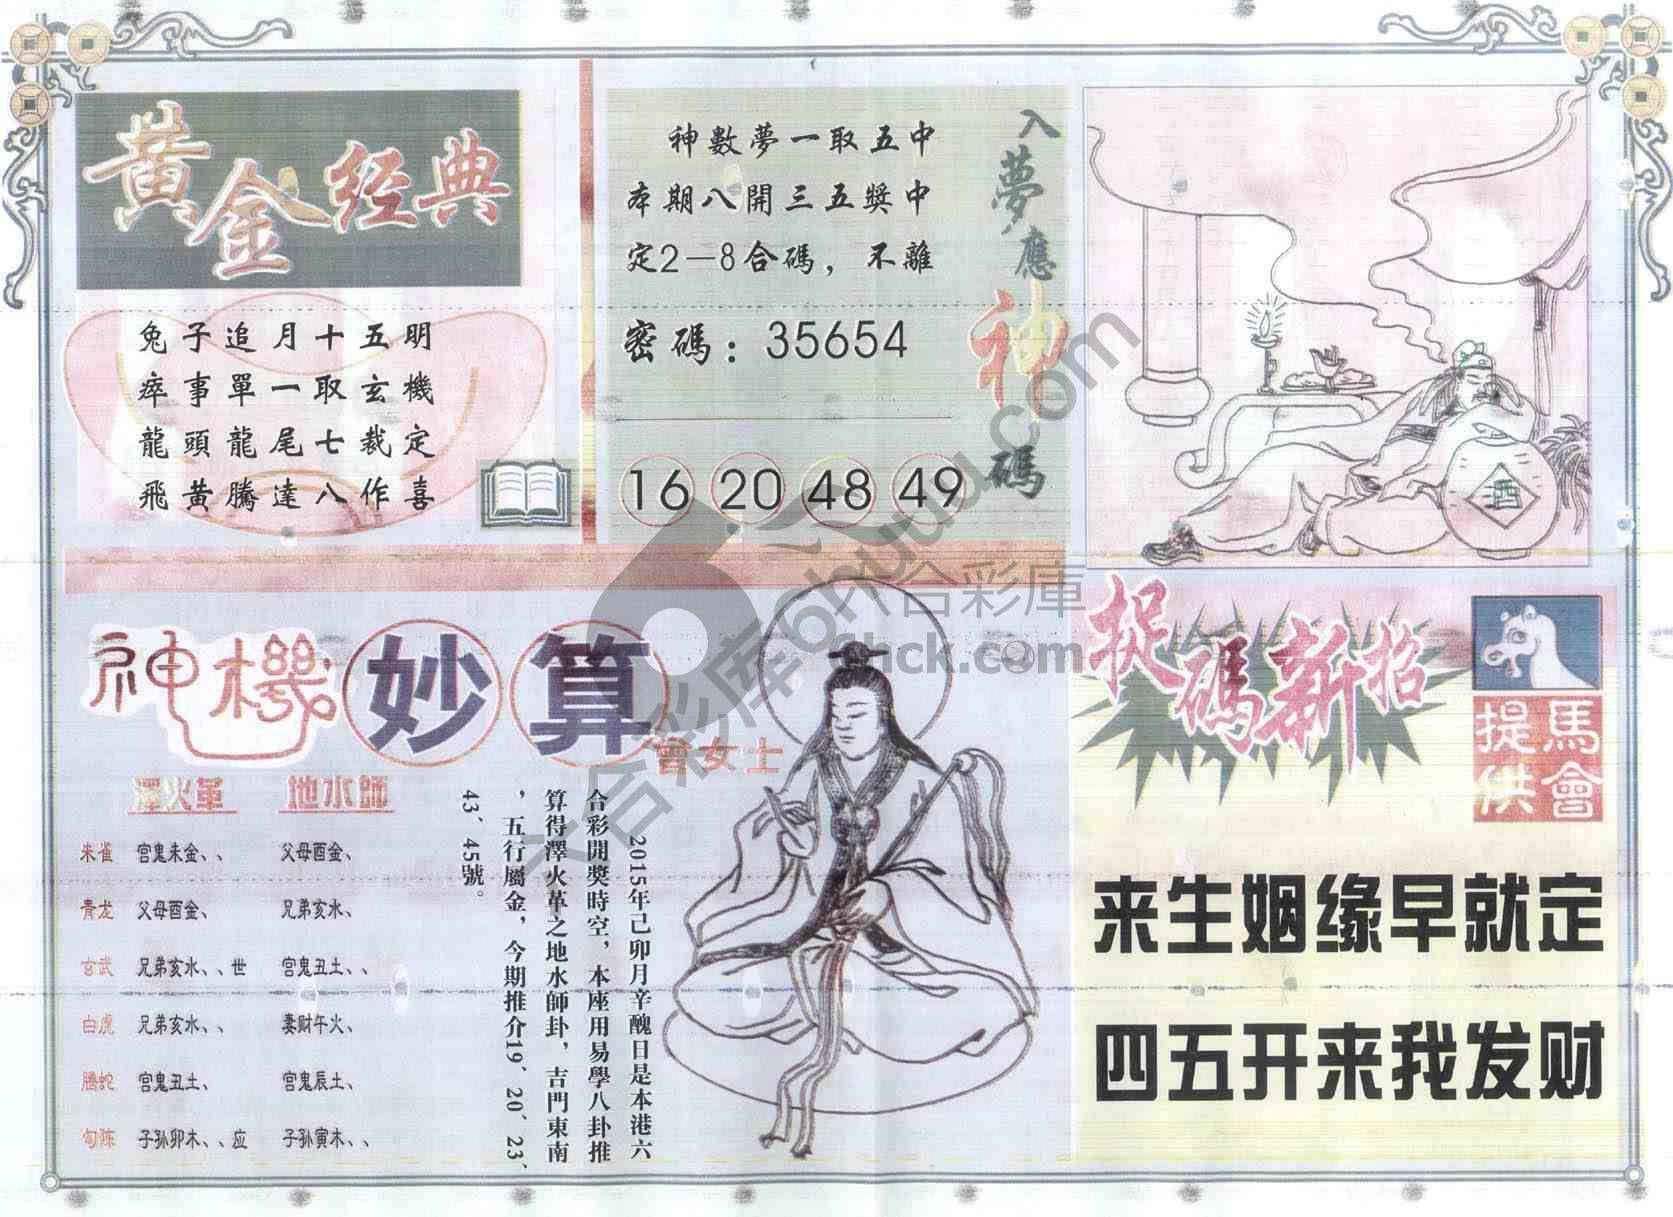 黄金经典
兔子追月十五明
瘁事單一取玄機
龍頭龍尾七裁定
飛黃騰達八作喜
入夢應神碼
神數夢一取五中
本期八開三五獎中
定2—8合碼，不離
密碼：35654
16 20 48 49
酒
神機妙算
曾女士
澤火革 地水師
朱雀 宫鬼未金、、 父母酉金、
青龙 父母酉金、 兄弟亥水、
玄武 兄弟亥水、、世 宫鬼丑土、、
白虎 兄弟亥水、、 妻财午火、
腾蛇 宫鬼丑土、 宫鬼辰土、
勾陈 子孙卯木、、应 子孙寅木、、
2015年己卯月辛醜日是本港六
合彩開獎時空，本座用易學八卦推
算得澤火革之地水師卦，吉門東南
，五行屬金，今期推介19、20、23、
43、45號。
捉碼新招
馬會提供
来生姻缘早就定
四五开来我发财
六合彩庫
6hck.com
六合彩库
6hyuu.com